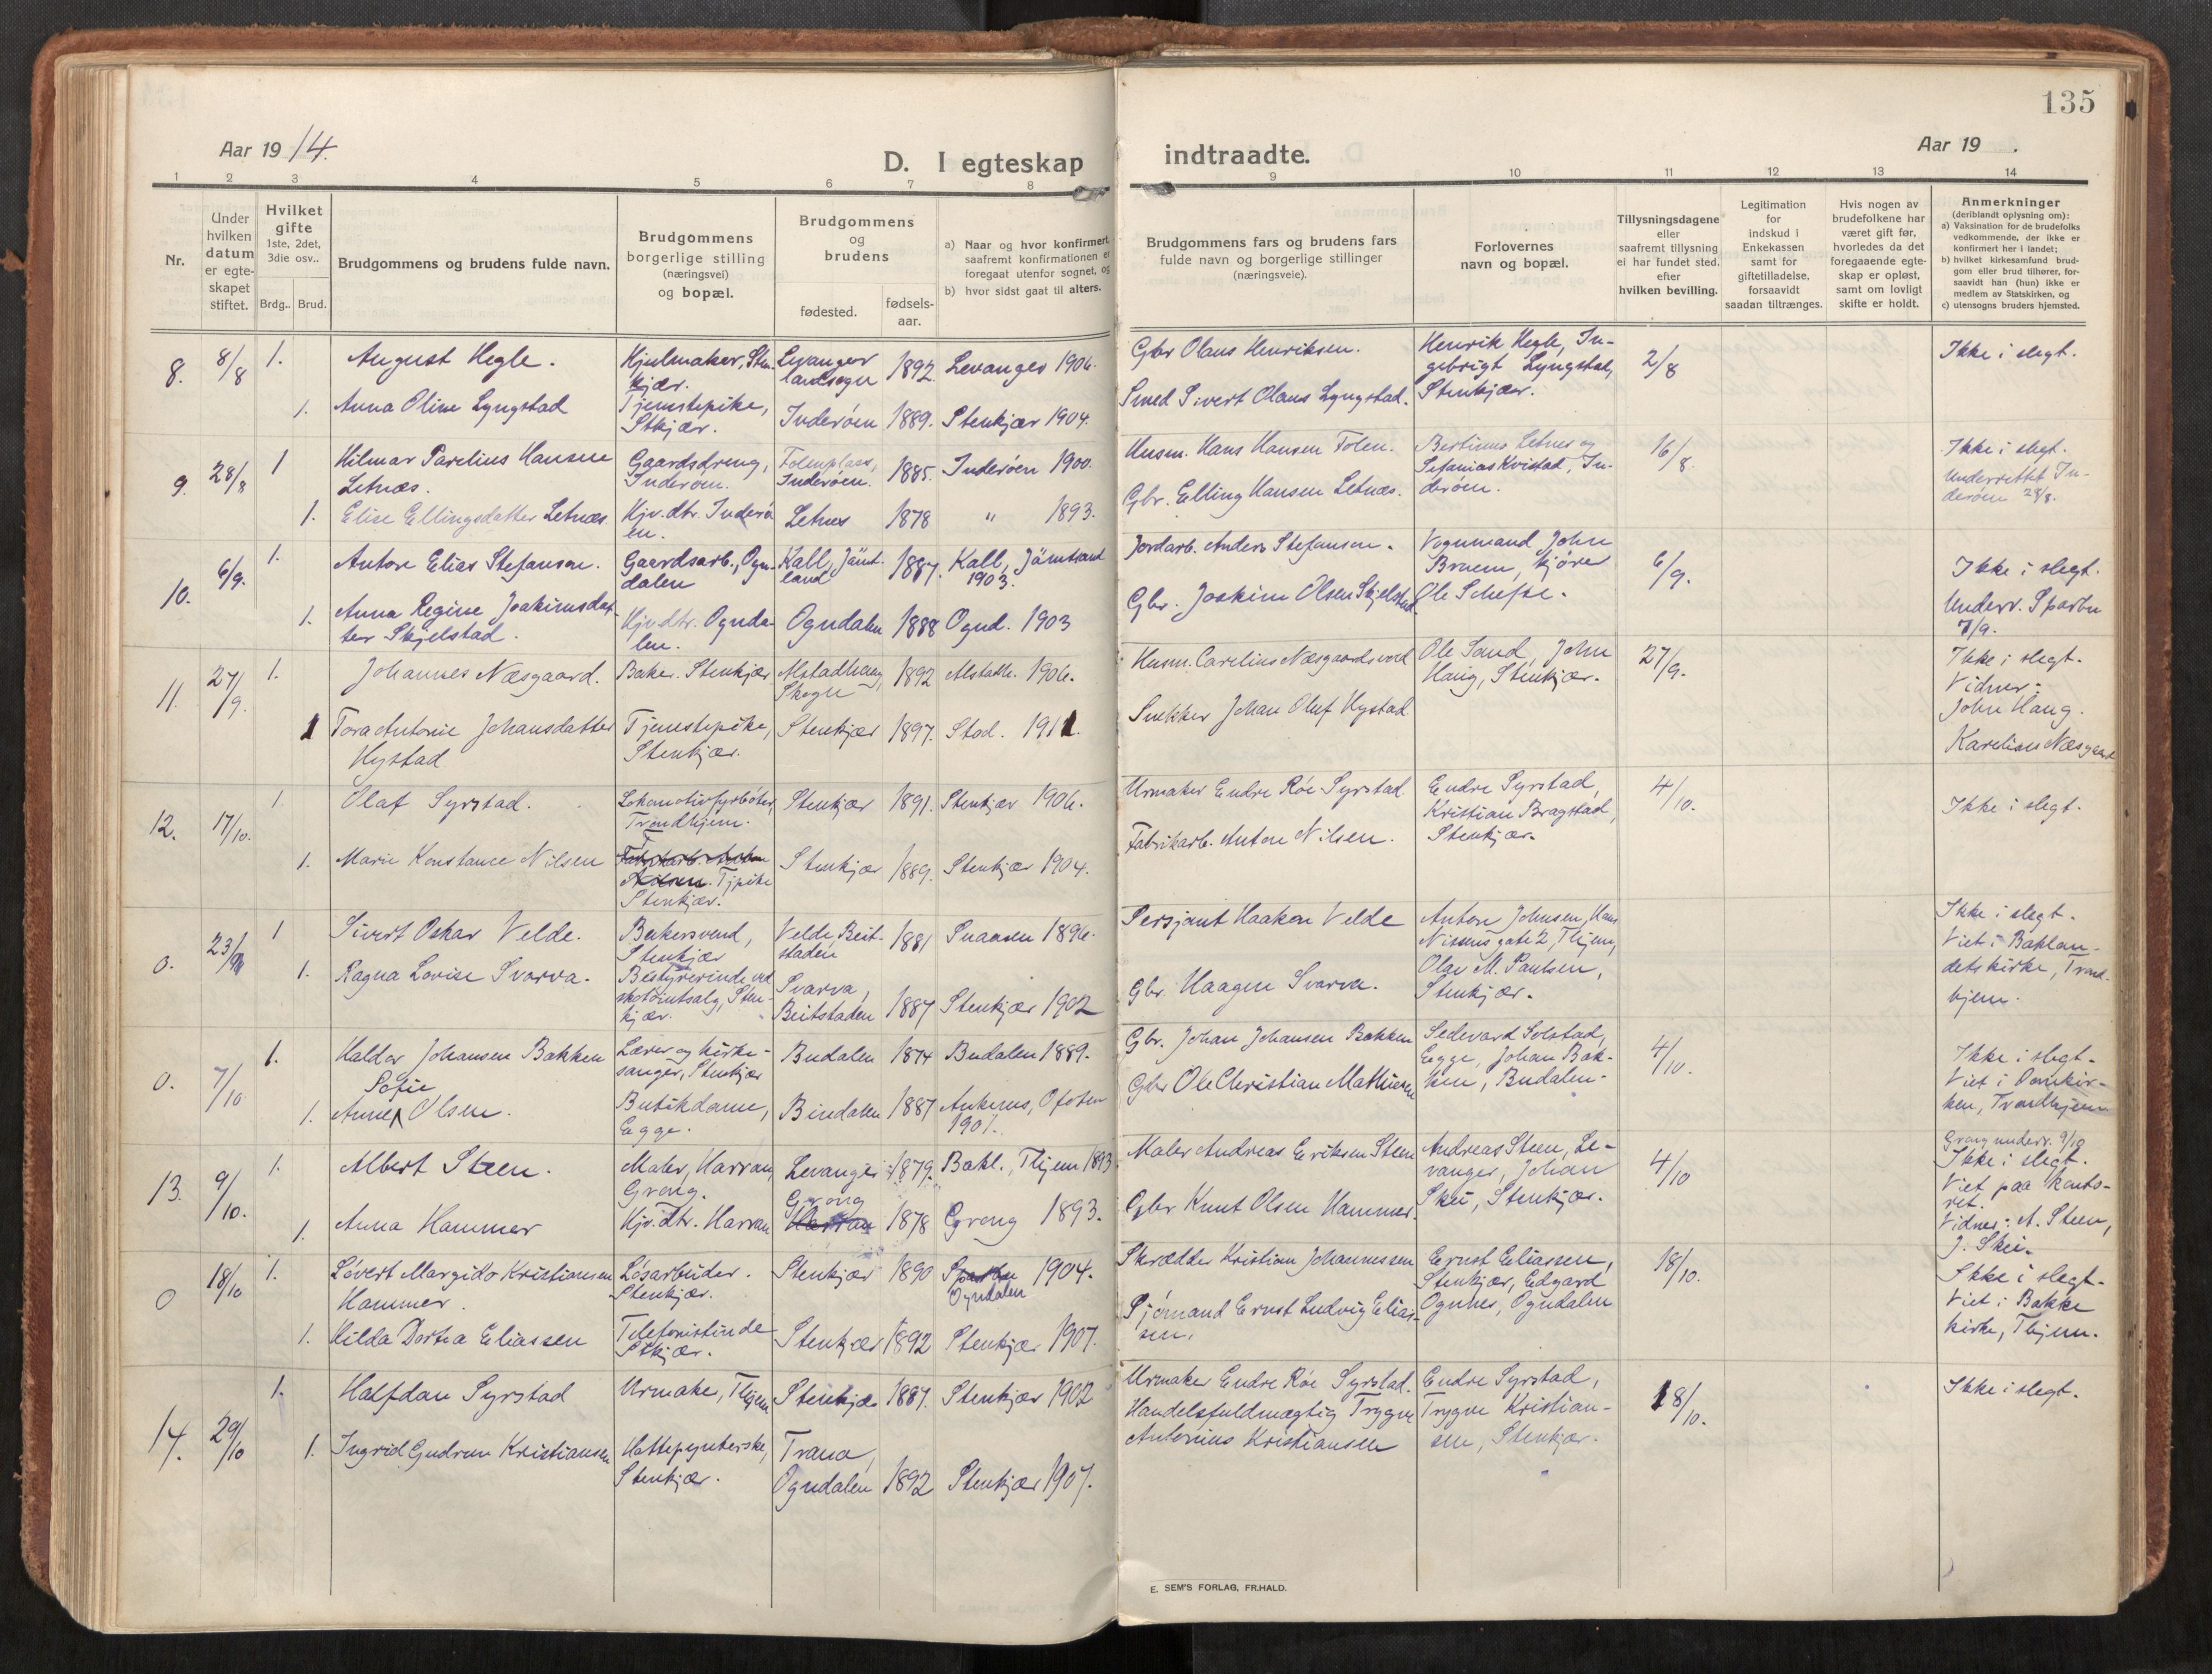 135
Aar 19 14.
D. I egteskap indtraadte.
Aar 19 .
1 2 3 4 5 6 7 8 9 10 11 12 13 14
Nr.
Under
hvilken
datum
er egte-
skapet
stiftet.
Hvilket
gifte
1ste, 2det,
3die osv..
Brdg.. Brud.
Brudgommens og brudens fulde navn.
Brudgommens
borgerlige stilling
(næringsvei)
og bopæl.
Brudgommens
og
brudens
fødested.
fødsels-
aar.
a) Naar og hvor konfirmert,
saafremt konfirmationen er
foregaat utenfor sognet, og
b) hvor sidst gaat til alters.
Brudgommens fars og brudens fars
fulde navn og borgerlige stillinger
(næringsveie).
Forlovernes
navn og bopæl.
Tillysningsdagene
eller
saafremt tillysning
ei har fundet sted.
efter
hvilken bevilling.
Legitimation
for
indskud i
Enkekassen
samt for
giftetilladelse,
forsaavidt
saadan tiltrænges.
Hvis nogen av
brudefolkene har
været gift før,
hvorledes da det
foregaaende egte-
skap er opløst,
samt om lovligt
skifte er holdt.
Anmerkninger
(deriblandt oplysning om):
a) Vaksination for de brudefolks
vedkommende, der ikke er
konfirmert her i landet;
b) hvilket kirkesamfund brud-
gom eller brud tilhører, for-
saavidt han (hun) ikke er
medlem av Statskirken, og
c) utensogns bruders hjemsted.
8. 8/8 1. August Hegle. Hjulmaker, Sten-
kjær. Levanger
landsogn 1892. Levanger 1906. Gbr Olaus Henriksen. Henrik Hegle, In-
gebrigt Lyngstad,
Stenkjær. 2/8 Ikke i slegt.
1. Anna Oline Lyngstad Tjenestepike,
Stkjær. Inderøen 1889. Stenkjær 1904. Smed Sivert Olaus Lyngstad.
9. 28/8 1 Hilmar Parelius Hansen
Letnæs. Gaardsdreng,
Inderøen. Folenplass,
Inderøen. 1885. Inderøen 1900. Husm. Hans Hansen Folen. Bertinus Letnes og
Sefanias Kvistad, In-
derøen. 16/8. Ikke i slegt.
Underrettet In-
derøen 28/8.
1. Elise Ellingsdatter Letnæs. Hjv.dtr. Inderø-
en. Letnes 1878 " 1893. Gbr. Elling Hansen Letnæs.
10. 6/9. 1. Anton Elias Stefanson. Gaardsarb., Ogn-
dalen Kall, Jämt-
land 1887. Kall, Jämtland
1903. Jordarb. Anders Stefanson. Vognmand John
Bruem, kjører
Ole Schefte. 6/9. Ikke i slegt.
Underr. Sparbu
7/9.
1. Anna Regine Joakimsdat-
ter Skjelstad. Hjv.dtr. Ognda-
len. Ogndalen 1888 Ognd. 1903 Gbr. Joakim Olsen Skjelstad
11. 27/9. 1. Johannes Næsgaard. Baker. Stenkjær Alstadhaug,
Skogn 1892 Alstadh. 1906. Husm. Carelius Næsgaardsvold Ole Sand, John
Haug, Stenkjær. 27/9. Ikke i slegt.
Vidner:
John Haug.
Karelius Næsgaard
1 Tora Antonie Johansdatter
Hystad Tjenestepike,
Stenkjær. Stenkjær 1897. Stod. 1911. Snekker Johan Oluf Hystad
12. 17/10. 1. Olaf Syrstad. Lokomotivfyrbøter,
Trondhjem. Stenkjær 1891. Stenkjær 1906. Urmaker Endre Røe Syrstad. Endre Syrstad,
Kristian Bragstad,
Stenkjær. 4/10. Ikke i slegt.
1. Marie Konstance Nilsen Fabrikarb. Anton
Nilsen. Tjpike
Stenkjær. Stenkjær 1889. Stenkjær 1904. Fabrikarb. Anton Nilsen.
0. 23/ 1 Sivert Oskar Velde. Bakersvend,
Stenkjær Velde Beit-
staden 1881 Snaasen 1896. Sersjant Haakon Velde Anton Johnsen, Hans
Nissens gate 2, Thjem,
Olav M. Paulsen,
Stenkjær. Ikke i slegt.
Viet i Baklan-
dets kirke, Trond-
hjem.
1. Ragna Lovise Svarva. Bestyrerinde ved
skotøiutsalg, Sten-
kjær. Svarva,
Beitstaden 1887 Stenkjær 1902 Gbr. Haagen Svarva.
0. 7/10 1. Haldor Johansen Bakken Lærer og kirke-
sanger, Stenkjær Budalen 1874 Budalen 1889. Gbr. Johan Johansen Bakken Sedevard Solstad,
Egge, Johan Bak-
ken, Budalen. 4/10. Ikke i slegt.
Viet i Domkir-
ken, Trondhjem
1. Anne Sofie Olsen. Butikdame,
Egge. Bindalen 1887 Ankenes, Ofoten
1901. Gbr Ole Christian Mathiesen
13. 9/10. 1. Albert Steen. Maler, Harran,
Grong. Levanger 1879. Bakl., Thjem 1893 Maler Andreas Eriksen Steen Andreas Steen, Le-
vanger, Johan
Skei, Stenkjær. 4/10 Grong underr. 9/10
Ikke i slegt.
Viet paa konto-
ret.
Vidner: A. Steen,
J. Skei.
1. Anna Hammer Hjv.dtr. Harran Grong
Harran 1878 Grong 1893. Gbr Knut Olsen Hammer.
0 18/10 1. Løvert Margido Kristiansen
Hammer. Løsarbeider.
Stenkjær. Stenkjær 1890 Sparbu 1904.
Ogndalen Skrædder Kristian Johannessen Ernst Eliassen,
Stenkjær, Edvard
Ognnes, Ogndalen 18/10. Ikke i slegt.
Viet i Bakke
kirke, Thjem.
1. Hilda Dortea Eliassen Telefonistinde
Stkjær. Stenkjær 1892 Stenkjær 1907. Sjømand Ernst Ludvig Elias-
sen.
14. 29/10 1. Halfdan Syrstad Urmaker, Thjem Stenkjær 1887. Stenkjær 1902 Urmaker Endre Røe Syrstad. Endre Syrstad,
Trygve Kristian-
sen, Stenkjær. 18/10. Ikke i slegt.
1. Ingrid Gudrun Kristiansen Hattepynterske,
Stenkjær. Trana,
Ogndalen 1892 Stenkjær 1907. Handelsfuldmægtig Trygve
Antonius Kristiansen
E. SEM'S FORLAG, FR.HALD.